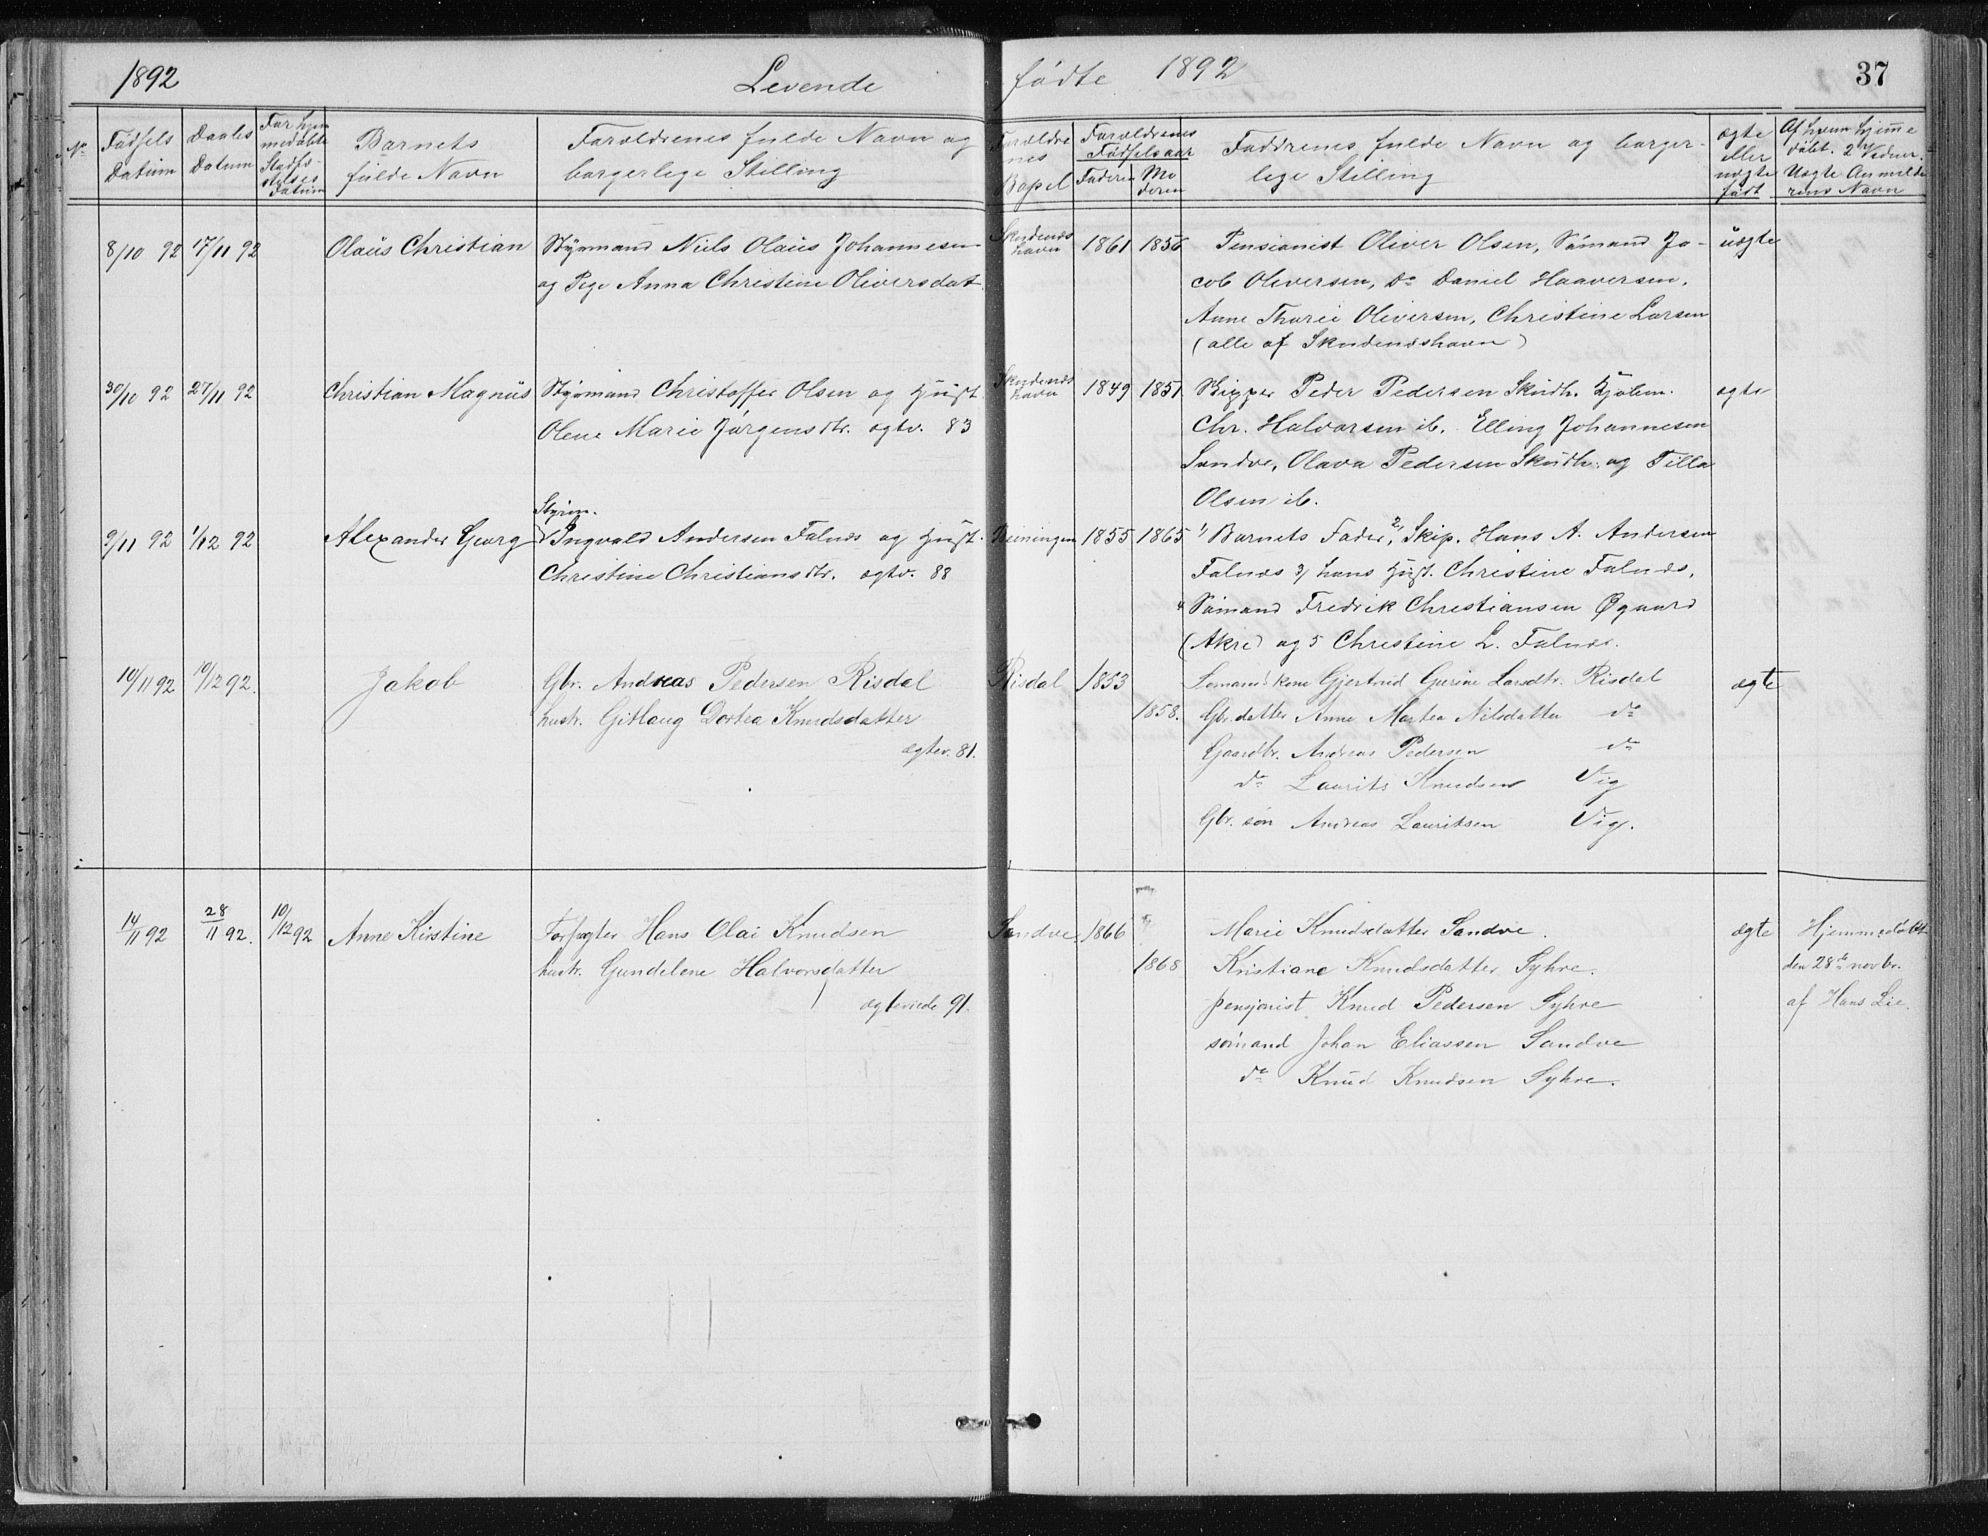 1892 Levende fødte 1892 37
No Fødsels Datum Daabs Datum For hjemmedøbte Stadfæstelses Datum Barnets fulde Navn Forældrenes fulde Navn og borgerlige Stilling Forældrenes Bopel Forældrenes Fødselsaar Faderen Moderen Faddrenes fulde Navn og borgerlige Stilling ægte eller uægte født Af hvem hjemmedøbt. 2 Vidner. Uægte Anmelderens Navn
8/10 92 17/11 92 Olaüs Christian Styrmand Niels Olaüs Johannesen Skudenæshavn 1861 1856 Pensionist Oliver Olsen, Sömand Ja- üægte
og Pige Anna Christine Oliversdat. cob Oliversen, Do Daniel Haaversen,
Anne Thurie Oliversen, Christine Larsen
(alle af Skudenæshavn)
30/10 92 27/11 92 Christian Magnüs Styrmand Christoffer Olsen og Hust. Skudenæshavn 1849 1851 Skipper Peder Pedersen Skudh. Kjøbm. ægte
Olene Marie Jørgensdtr. ægtv. 83 Chr. Halvorsen ib. Elling Johannesen
Sandve, Olava Pedersen Skudh. og Tilla
Olsen ib.
Styrm.
9/11 92 1/12 92 Alexander Georg Ingvald Andersen Falnæs og Hust. Beiningen 1855 1865 1) Barnets Fader, 2) Skip. Hans A. Andersen
Christine Christiansdtr. ægtv. 88 Falnæs 3) hans Hust. Christine Falnæs,
4 Sömand Fredrik Christiansen Øgaard
(Akre) og 5 Christine L. Falnæs.
10/11 92 10/12 92. Jakob Gbr. Andreas Pedersen Risdal Risdal 1853 Somands kone Gjertrud Gurine Larsdtr. Risdal ægte
hustr. Gitlaug Dortea Knudsdatter 1858. Gbr. datter Anne Martea Nilsdatter do
ægtev. 81. Gaardbr. Andreas Pedersen do
do Laurits Knudsen Vig
Gbr. søn Andreas Lauritsen Vig.
14/11 92 28/11 92. 10/12 92 Anne Kirstine Forpagter Hans Olai Knudsen Sandve 1866 Marie Knudsdatter Sandve. ægte Hjemmedøbt
hustr. Gundelene Halvorsdatter 1868 Kristiane Knudsdatter Syhre. den 28de novbr.
ægteviede 91. pensjonist Knud Pedersen Syhre af Hans Lie.
sømand Johan Eliassen Sandve
do Knud Knudsen Syhre.